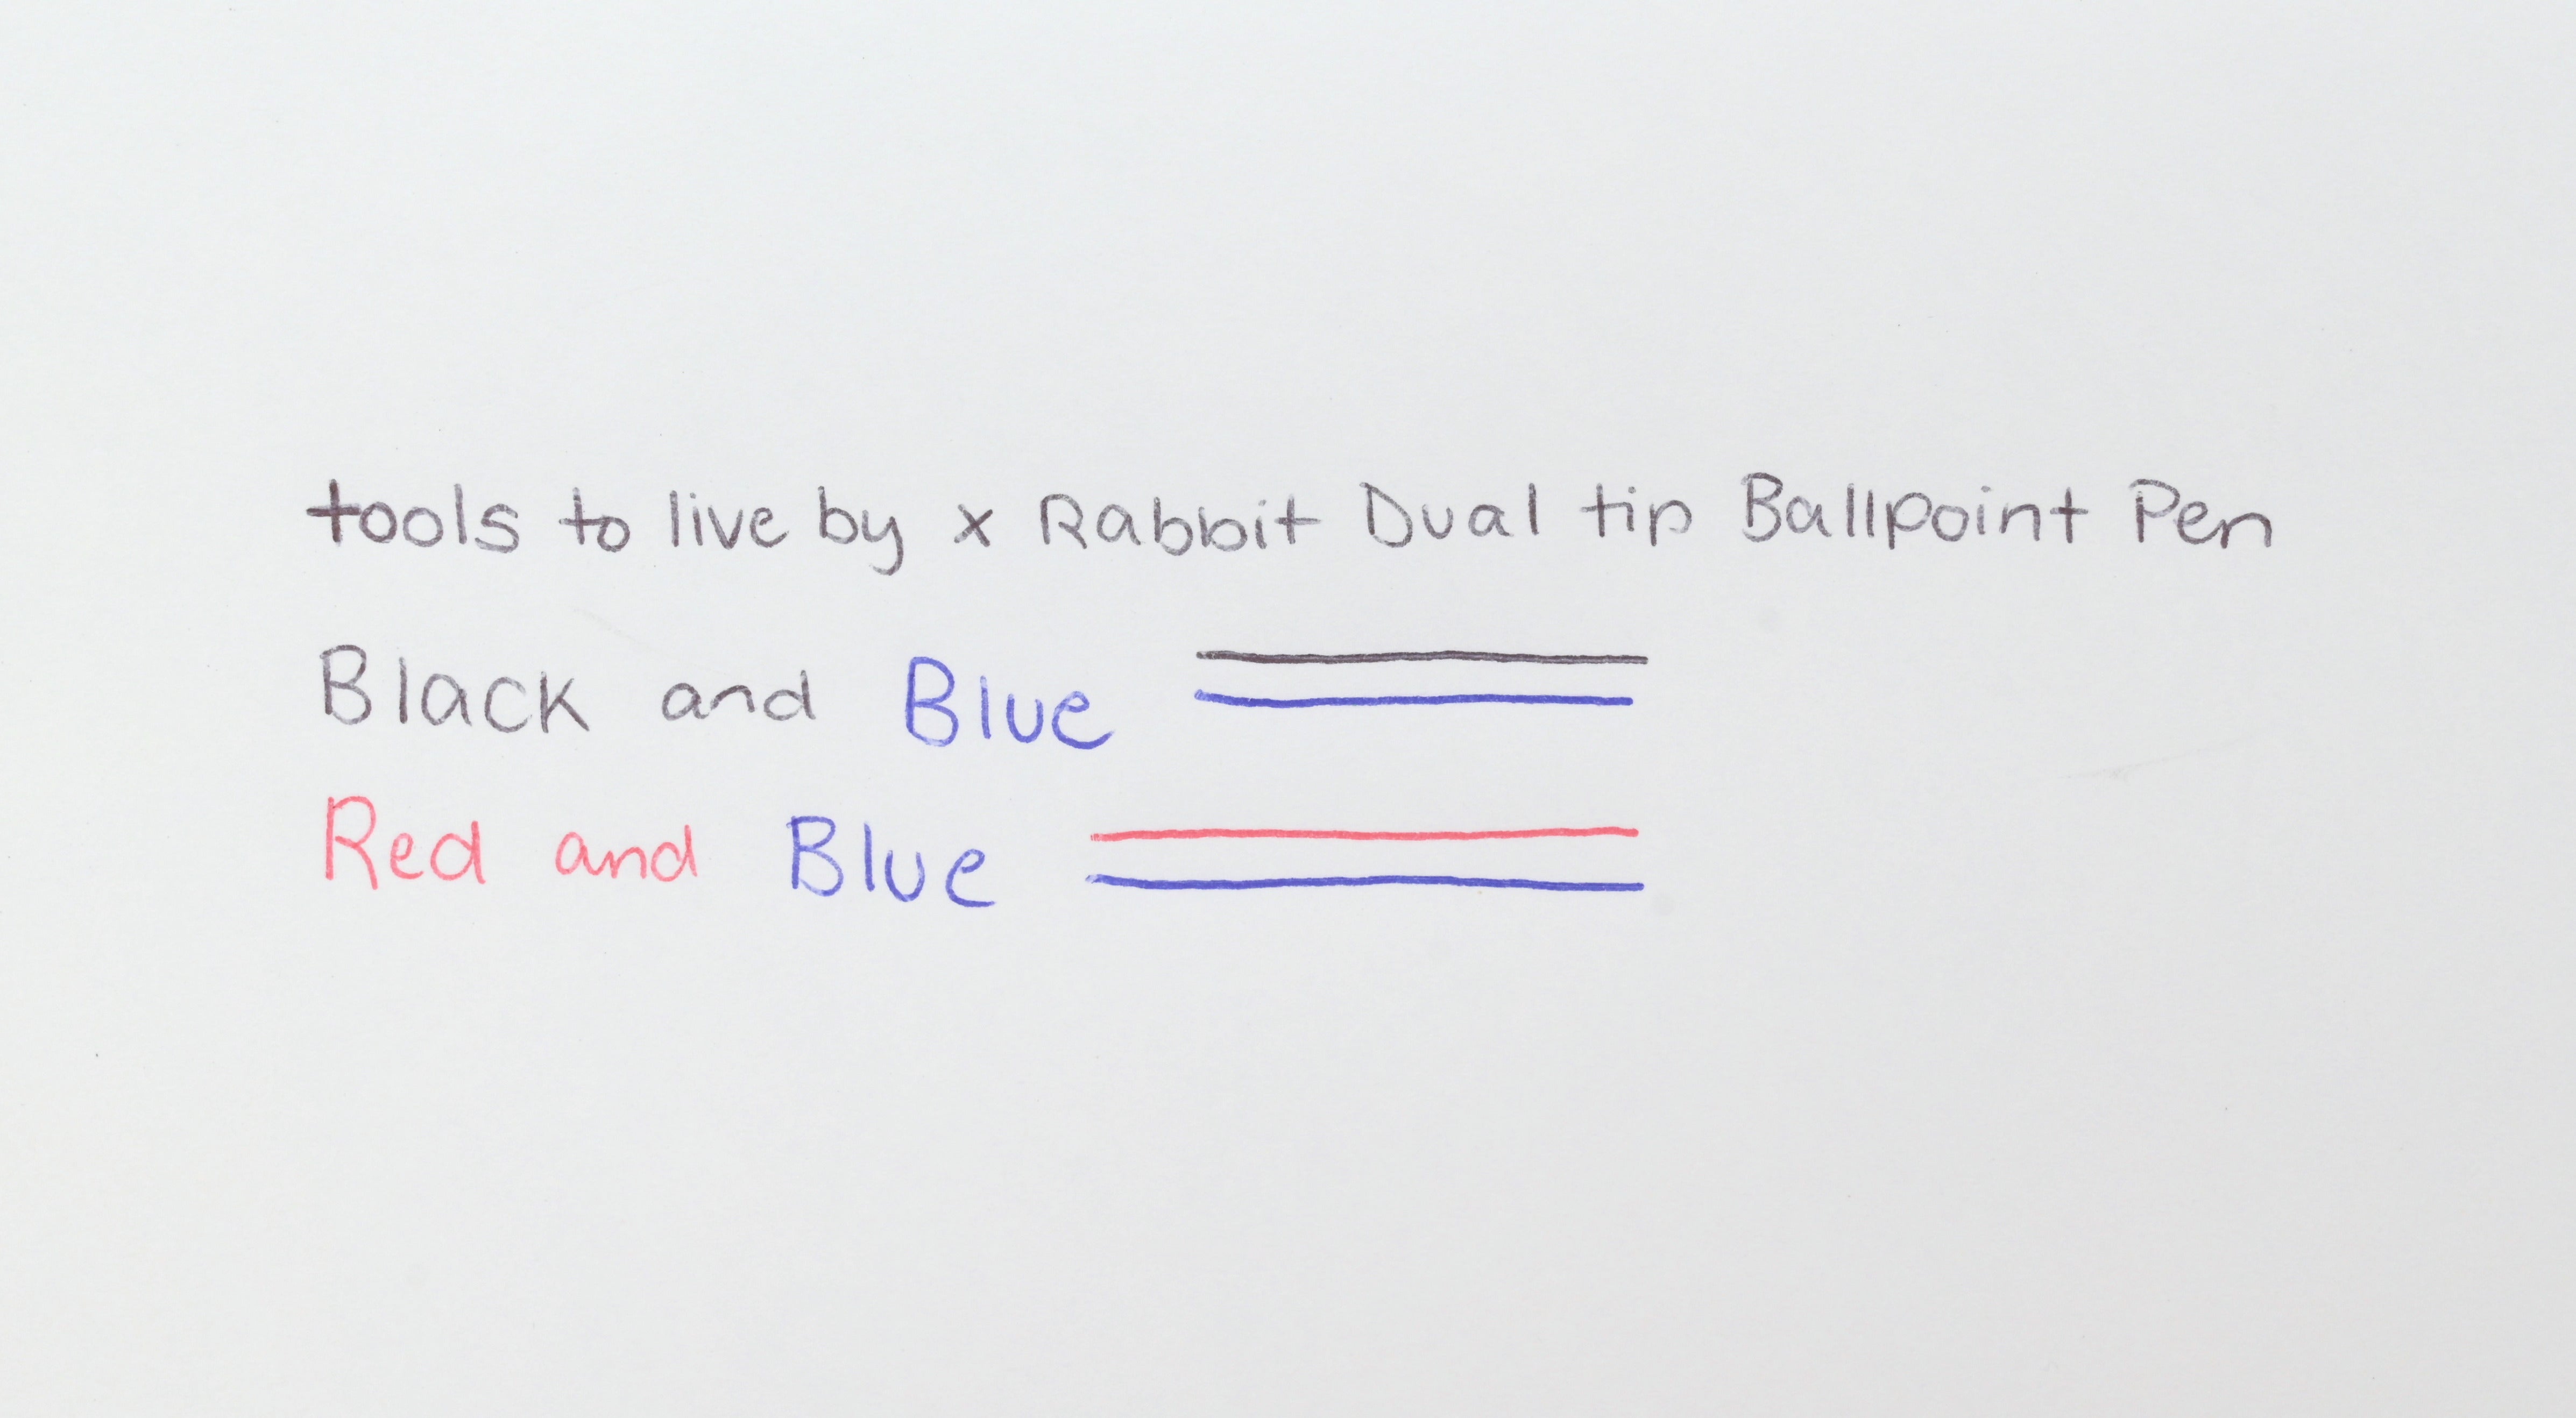 tools to live by x Rabbit Dual tip Ballpoint Pen
Black and Blue
Red and Blue